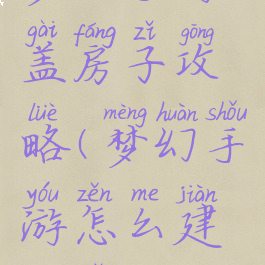 gài fáng zǐ gōng
盖房子攻
lüè mèng huàn shǒu
略(梦幻手
yóu zěn me jiàn
游怎么建